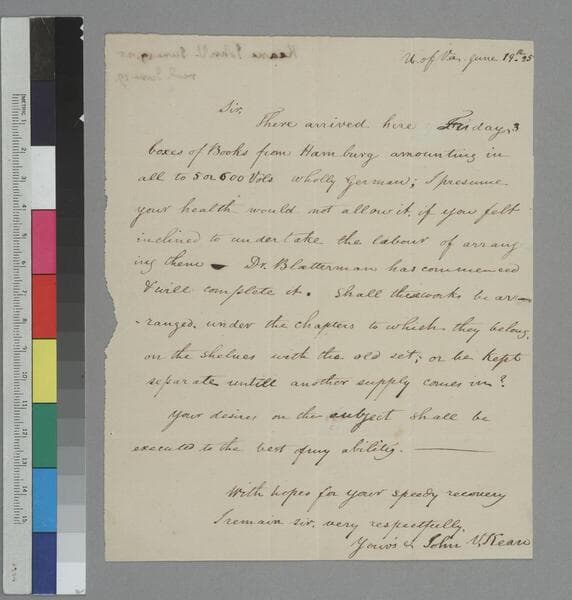 U. of Va. June 19th 25
Sir,
There arrived here Friday, 3
boxes of Books from Hamburg amounting in
all to 5 or 600 Vols wholly German; I presume
your health would not allow it, if you felt
inclined to undertake the labour of arrang
ing them — Dr. Blætterman has commenced
& will complete it. Shall these works be ar-
-ranged, under the chapters to which they belong,
on the shelves with the old set; or be kept
separate untill another supply comes in?
Your desires on the subject shall be
executed to the best of my ability. ———
With hopes for your speedy recovery
I remain sir, very respectfully.
Your's &c John V. Kean